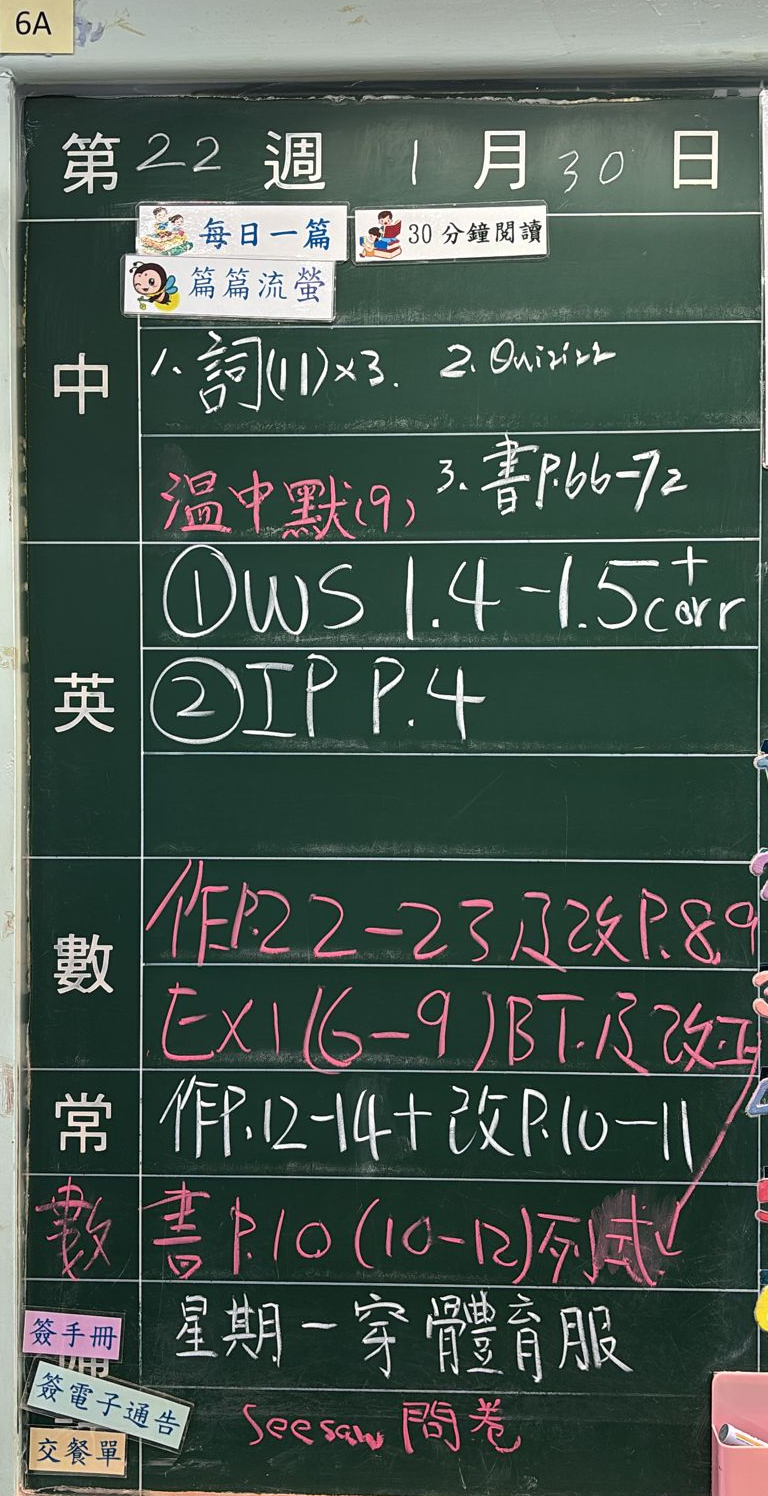 6A
第22週 1月30日
每日一篇 30分鐘閱讀
篇篇流螢
中 1. 詞(11)×3. 2. Quizizz
溫中默(9) 3. 書P.66-72
英 ①WS 1.4-1.5+corr
②IP P.4
數 作P.22-23及改P.8,9
EX1(6-9)BT.及改正
常 作P.12-14+改P.10-11
數 書P.10(10-12)列式
星期一穿體育服
簽手冊
簽電子通告
Seesaw 問卷
交餐單